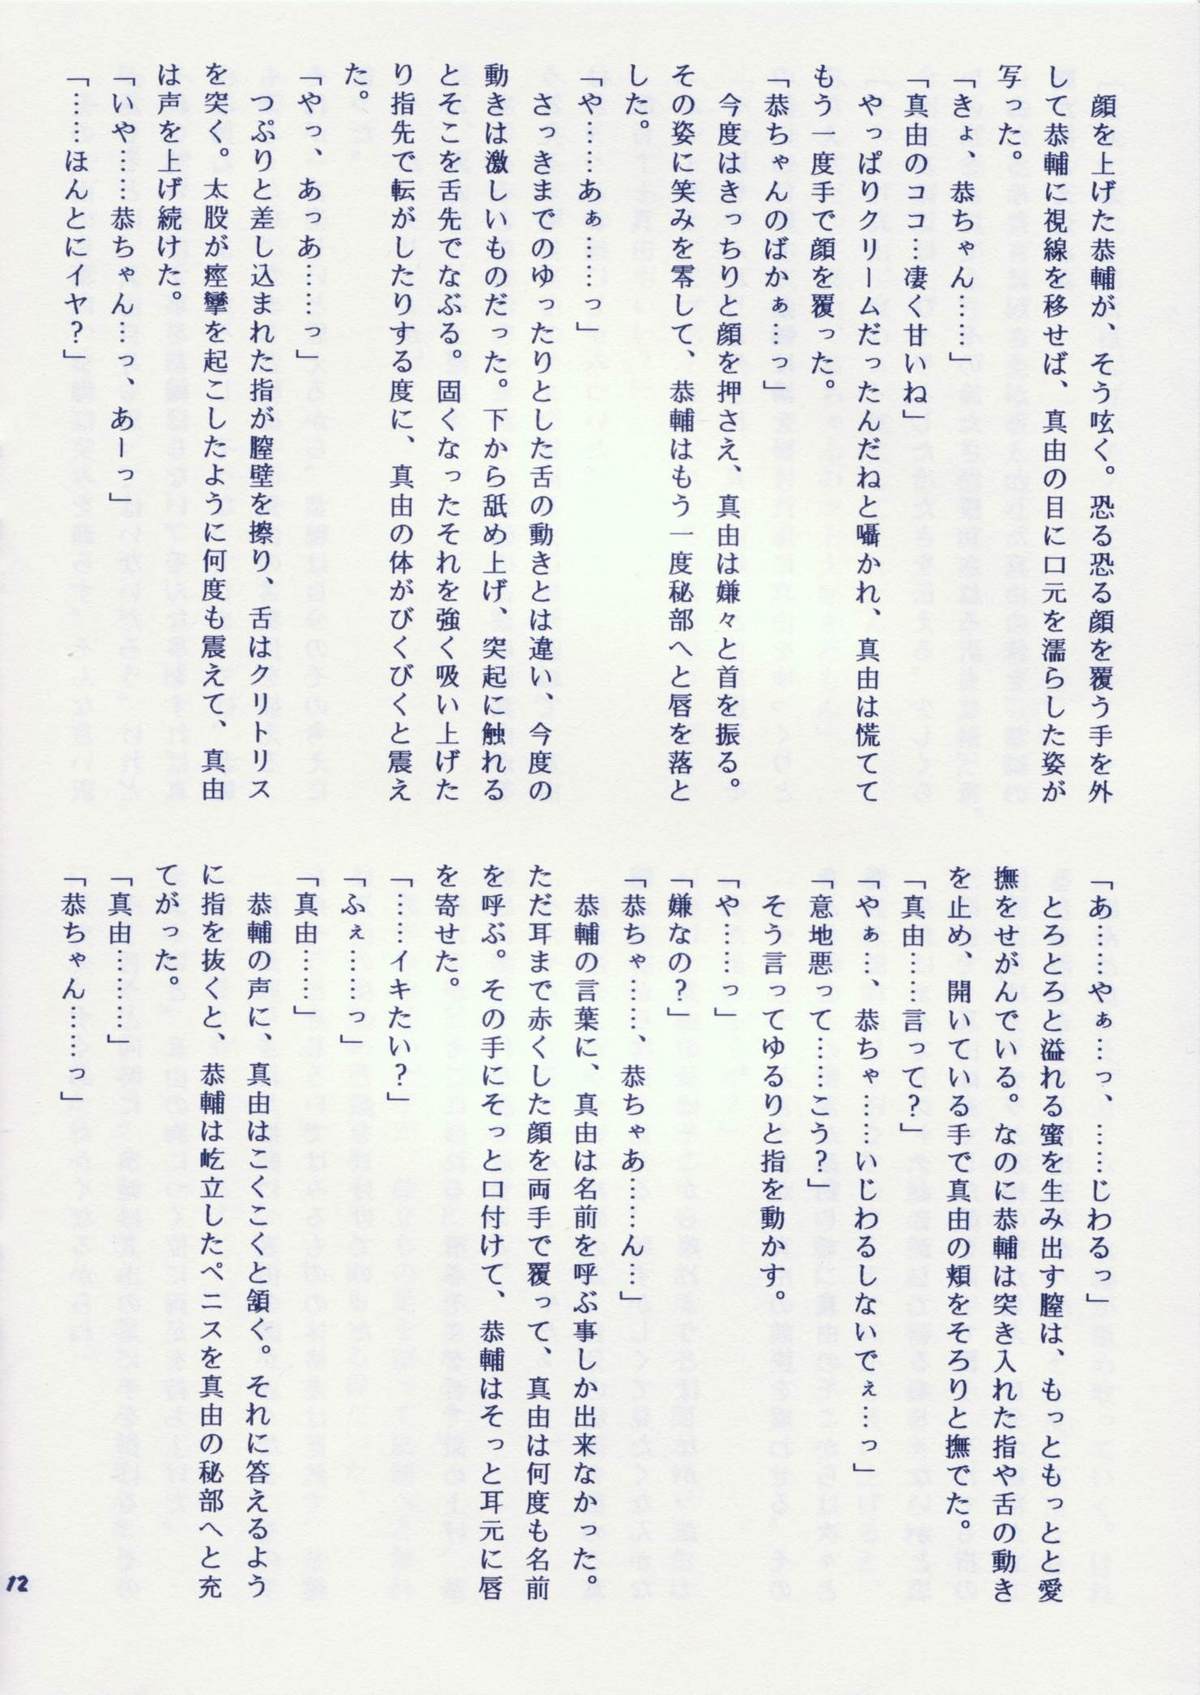 顔を上げた恭輔が、そう呟く。恐る恐る顔を覆う手を外
して恭輔に視線を移せば、真由の目に口元を濡らした姿が
写った。
「きょ、恭ちゃん……」
「真由のココ…凄く甘いね」
やっぱりクリームだったんだねと囁かれ、真由は慌てて
もう一度手で顔を覆った。
「恭ちゃんのばかぁ…っ」
今度はきっちりと顔を押さえ、真由は嫌々と首を振る。
その姿に笑みを零して、恭輔はもう一度秘部へと唇を落と
した。
「や……あぁ……っ」
さっきまでのゆったりとした舌の動きとは違い、今度の
動きは激しいものだった。下から舐め上げ、突起に触れる
とそこを舌先でなぶる。固くなったそれを強く吸い上げた
り指先で転がしたりする度に、真由の体がびくびくと震え
た。
「やっ、あっあ……っ」
つぷりと差し込まれた指が膣壁を擦り、舌はクリトリス
を突く。太股が痙攣を起こしたように何度も震えて、真由
は声を上げ続けた。
「いや……恭ちゃん…っ、あーっ」
「……ほんとにイヤ？」
「あ……やぁ…っ、……じわるっ」
とろとろと溢れる蜜を生み出す膣は、もっともっとと愛
撫をせがんでいる。なのに恭輔は突き入れた指や舌の動き
を止め、開いている手で真由の頬をそろりと撫でた。
「真由……言って？」
「やぁ…、恭ちゃ……いじわるしないでぇ…っ」
「意地悪って……こう？」
そう言ってゆるりと指を動かす。
「や……っ」
「嫌なの？」
「恭ちゃ……、恭ちゃあ……ん…」
恭輔の言葉に、真由は名前を呼ぶ事しか出来なかった。
ただ耳まで赤くした顔を両手で覆って、真由は何度も名前
を呼ぶ。その手にそっと口付けて、恭輔はそっと耳元に唇
を寄せた。
「……イキたい？」
「ふぇ……っ」
「真由……」
恭輔の声に、真由はこくこくと頷く。それに答えるよう
に指を抜くと、恭輔は屹立したペニスを真由の秘部へと充
てがった。
「真由………」
「恭ちゃん……っ」
12